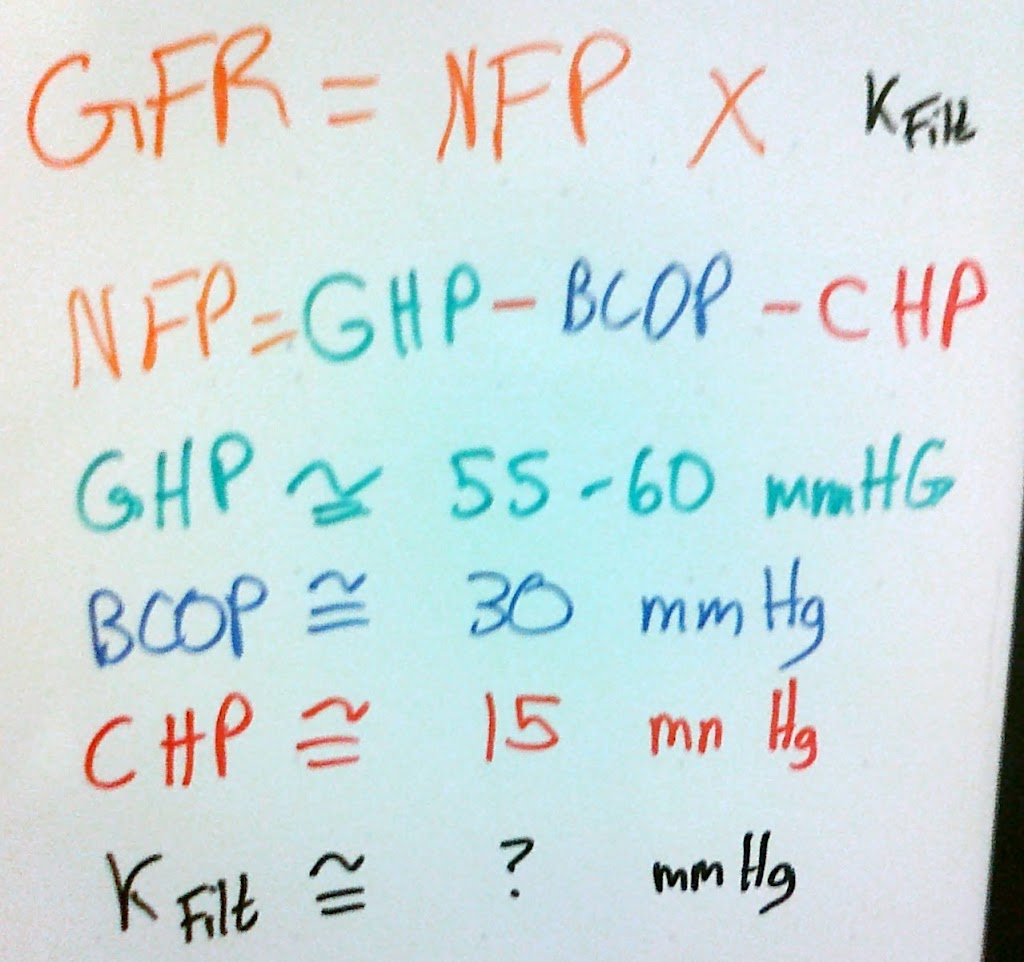 GFR = NFP X KFilt
NFP = GHP - BCOP - CHP
GHP ≅ 55-60 mmHG
BCOP ≅ 30 mmHg
CHP ≅ 15 mn Hg
KFilt ≅ ? mmHg